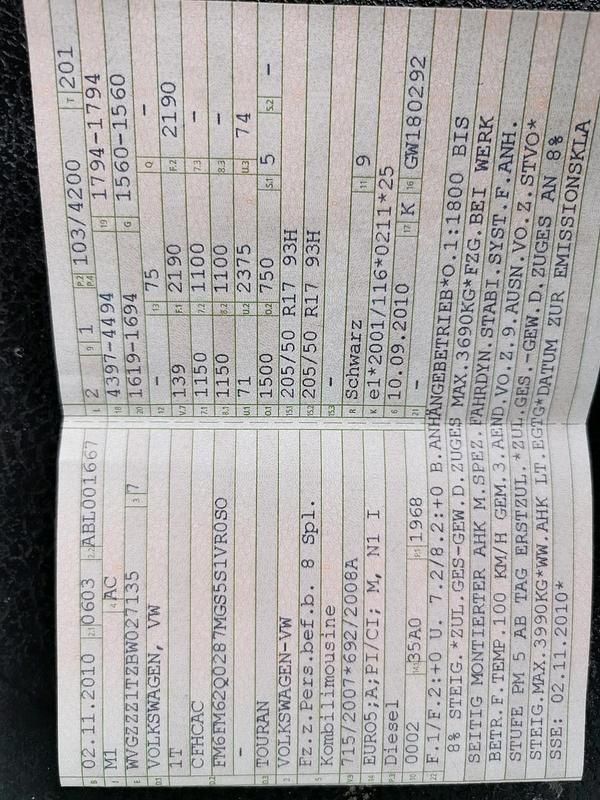 B 02.11.2010 2.1 0603 2.2 ABL001667
J M1 4 AC
E WVGZZZ1TZBW027135 3 7
D.1 VOLKSWAGEN, VW
1T
D.2 CFHCAC
FM6FM62Q0287MGS5S1VR0SO
-
D.3 TOURAN
2 VOLKSWAGEN-VW
5 Fz.z.Pers.bef.b. 8 Spl.
Kombilimousine
V.9 715/2007*692/2008A
14 EURO5;A;PI/CI; M, N1 I
P.3 Diesel
10 0002 14.1 35A0 P.1 1968
L 2 9 1 P.2 P.4 103/4200 T 201
18 4397-4494 19 1794-1794
20 1619-1694 G 1560-1560
12 - 13 75 Q -
V.7 139 F.1 2190 F.2 2190
7.1 1150 7.2 1100 7.3 -
8.1 1150 8.2 1100 8.3 -
U.1 71 U.2 2375 U.3 74
O.1 1500 O.2 750 S.1 5 S.2 -
15.1 205/50 R17 93H
15.2 205/50 R17 93H
15.3 -
R Schwarz 11 9
K e1*2001/116*0211*25
6 10.09.2010 17 K 16 GW180292
21 -
22 F.1/F.2:+0 U. 7.2/8.2:+0 B.ANHÄNGEBETRIEB*O.1:1800 BIS
8% STEIG.*ZUL.GES-GEW.D.ZUGES MAX.3690KG*FZG.BEI WERK
SEITIG MONTIERTER AHK M.SPEZ.FAHRDYN.STABI.SYST.F.ANH.
BETR.F.TEMP.100 KM/H GEM.3.AEND.VO.Z.9.AUSN.VO.Z.STVO*
STUFE PM 5 AB TAG ERSTZUL.*ZUL.GES.-GEW.D.ZUGES AN 8%
STEIG.MAX.3990KG*WW.AHK LT.EGTG*DATUM ZUR EMISSIONSKLA
SSE: 02.11.2010*